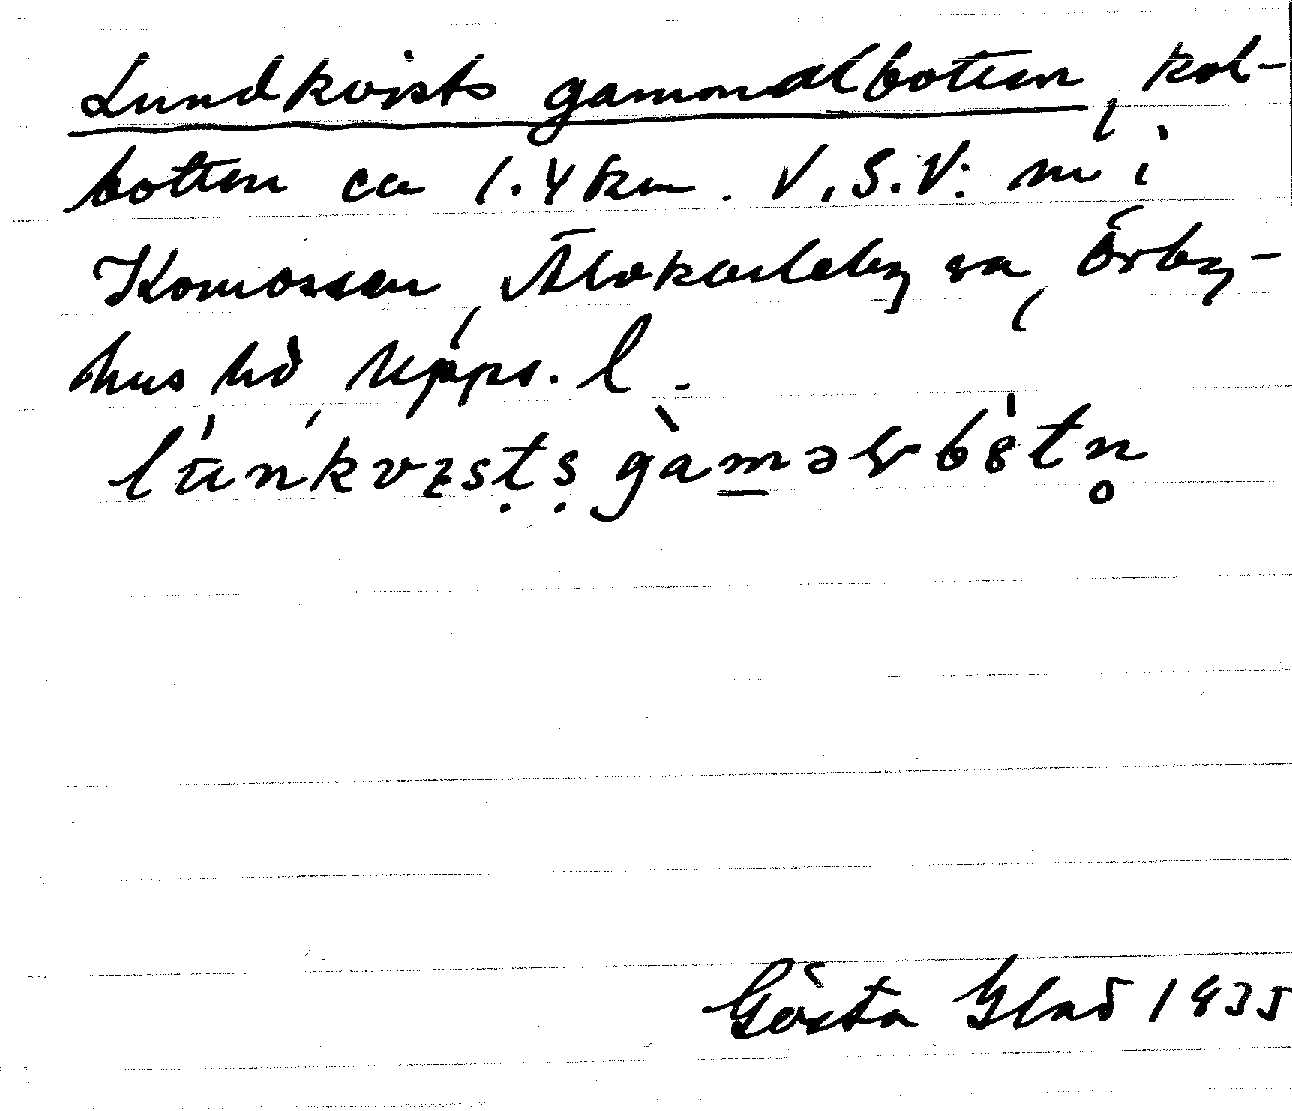 Lundkvists gammalbotten, kol-
botten ca 1.4 km. V.S.V. m i
Komossen, Älvkarleby sn, Örby-
hus hd, Upps. l.
lu̇nkvɪsṭṣ gàm̲əɽbȯtn̥
Gösta Glad 1935